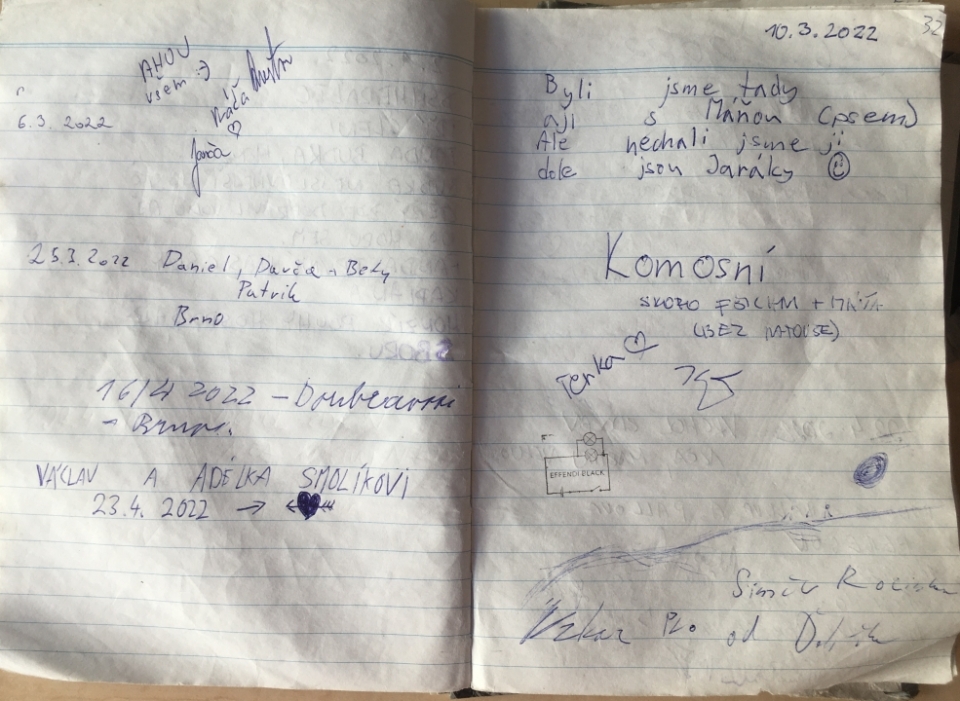 AHOJ
všem :)
Káča
6.3. 2022
Janča
25.3.2022 Daniel, Davča + Beky
Patrik
Brno
16/4 2022 –
VÁCLAV A ADÉLKA SMOLÍKOVI
23.4. 2022 →
32
10.3.2022
Byli jsme tady
aji s Máňou (psem)
Ale nechali jsme ji
dole jsou Jaráky
Komosní
SKORO VŠICHNI +
(BEZ MATOUŠE)
Terka
EFFENDI-BLACK
Vzkaz pro od